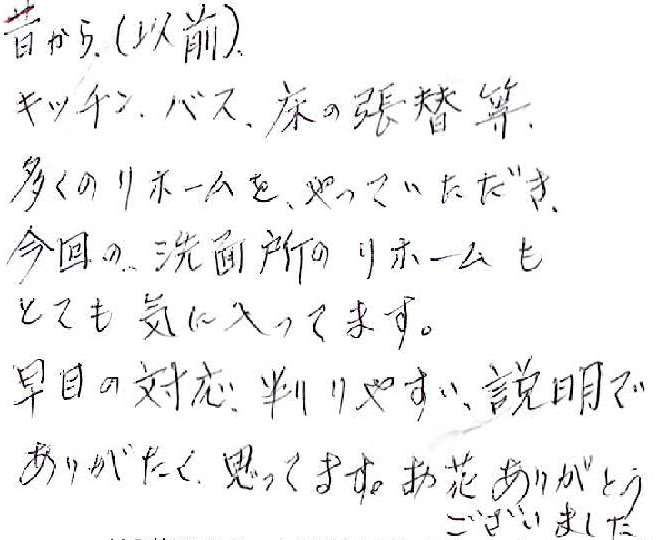 昔から、(以前)、
キッチン、バス、床の張替等、
多くのリホームを、やっていただき、
今回の、洗面所のリホームも
とても気に入ってます。
早目の対応、判りやすい、説明で
ありがたく、思ってます。お花ありがとう
ございました